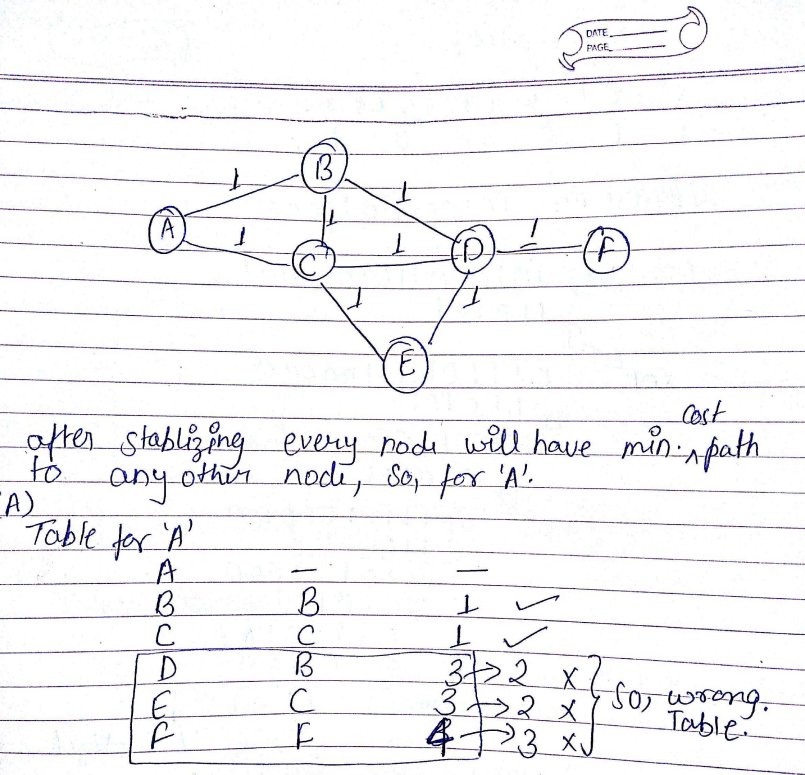 DATE
PAGE
B
1
1
A
1
1
1
1
C
D
F
1
1
E
Cost
after stablizing every node will have min. ^ path
to any other node, So, for 'A'.
A)
Table for 'A'
A — —
B B 1 ✓
C C 1 ✓
D B 3 → 2 ×
E C 3 → 2 × } So, wrong.
F F 4 → 3 × Table.